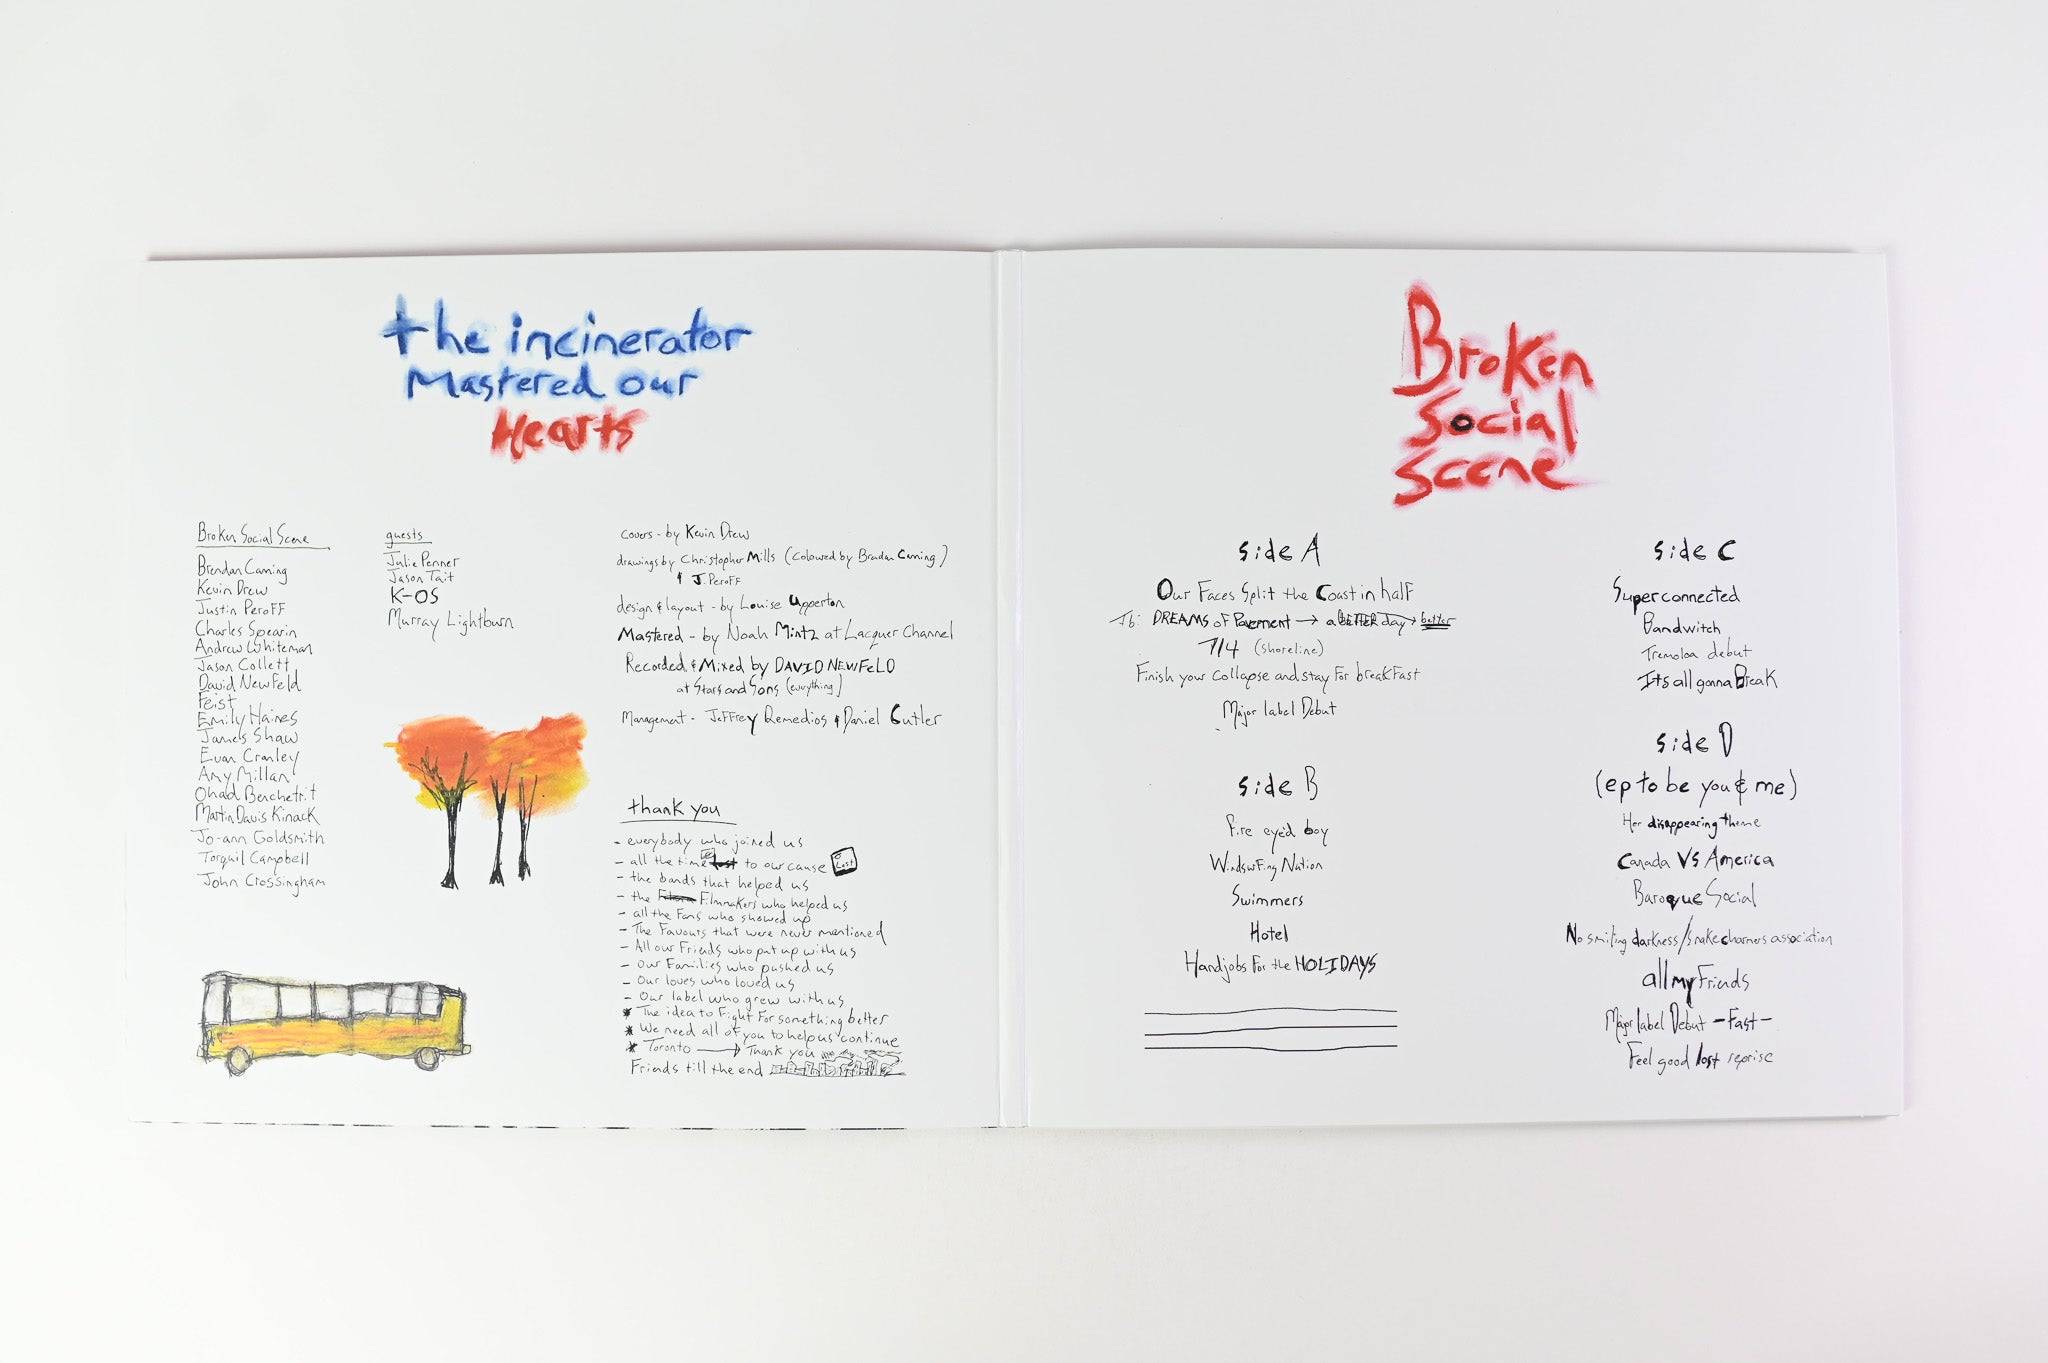 the incinerator
Mastered our
Hearts
Broken Social Scene
Brendan Canning
Kevin Drew
Justin Peroff
Charles Spearin
Andrew Whiteman
Jason Collett
David Newfeld
Feist
Emily Haines
James Shaw
Evan Cranley
Amy Millan
Ohad Benchetrit
Martin Davis Kinack
Jo-ann Goldsmith
Torquil Campbell
John Crossingham
guests
Julie Penner
Jason Tait
K-OS
Murray Lightburn
covers - by Kevin Drew
drawings by Christopher Mills (coloured by Brendan Canning)
& J. Peroff
design & layout - by Louise Upperton
Mastered - by Noah Mintz at Lacquer Channel
Recorded & Mixed by DAVID NEWFELD
at Stars and Sons (everything)
Management - Jeffrey Remedios & Daniel Cutler
thank you
- everybody who joined us
- all the time lost to our cause Lost
- the bands that helped us
- the Filmmakers who helped us
- all the Fans who showed up
- The Favours that were never mentioned
- All our Friends who put up with us
- Our Families who pushed us
- Our loves who loved us
- Our label who grew with us
* The idea to Fight For something better
* We need all of you to help us continue
* Toronto → Thank you
Friends till the end
Broken
Social
Scene
side A
Our Faces Split the Coast in half
Ib: DREAMS of Pavement → a BETTER Day → better
7/4 (shoreline)
Finish your collapse and stay For breakFast
Major label Debut
side B
Fire eye'd boy
Windsurfing Nation
Swimmers
Hotel
Handjobs For the HOLIDAYS
side C
Superconnected
Bandwitch
Tremoloa debut
It's all gonna Break
side D
(ep to be you & me)
Her disappearing theme
Canada VS America
Baroque Social
No smiling darkness/snakecharmers association
all my Friends
Major label Debut -Fast-
Feel good lost reprise